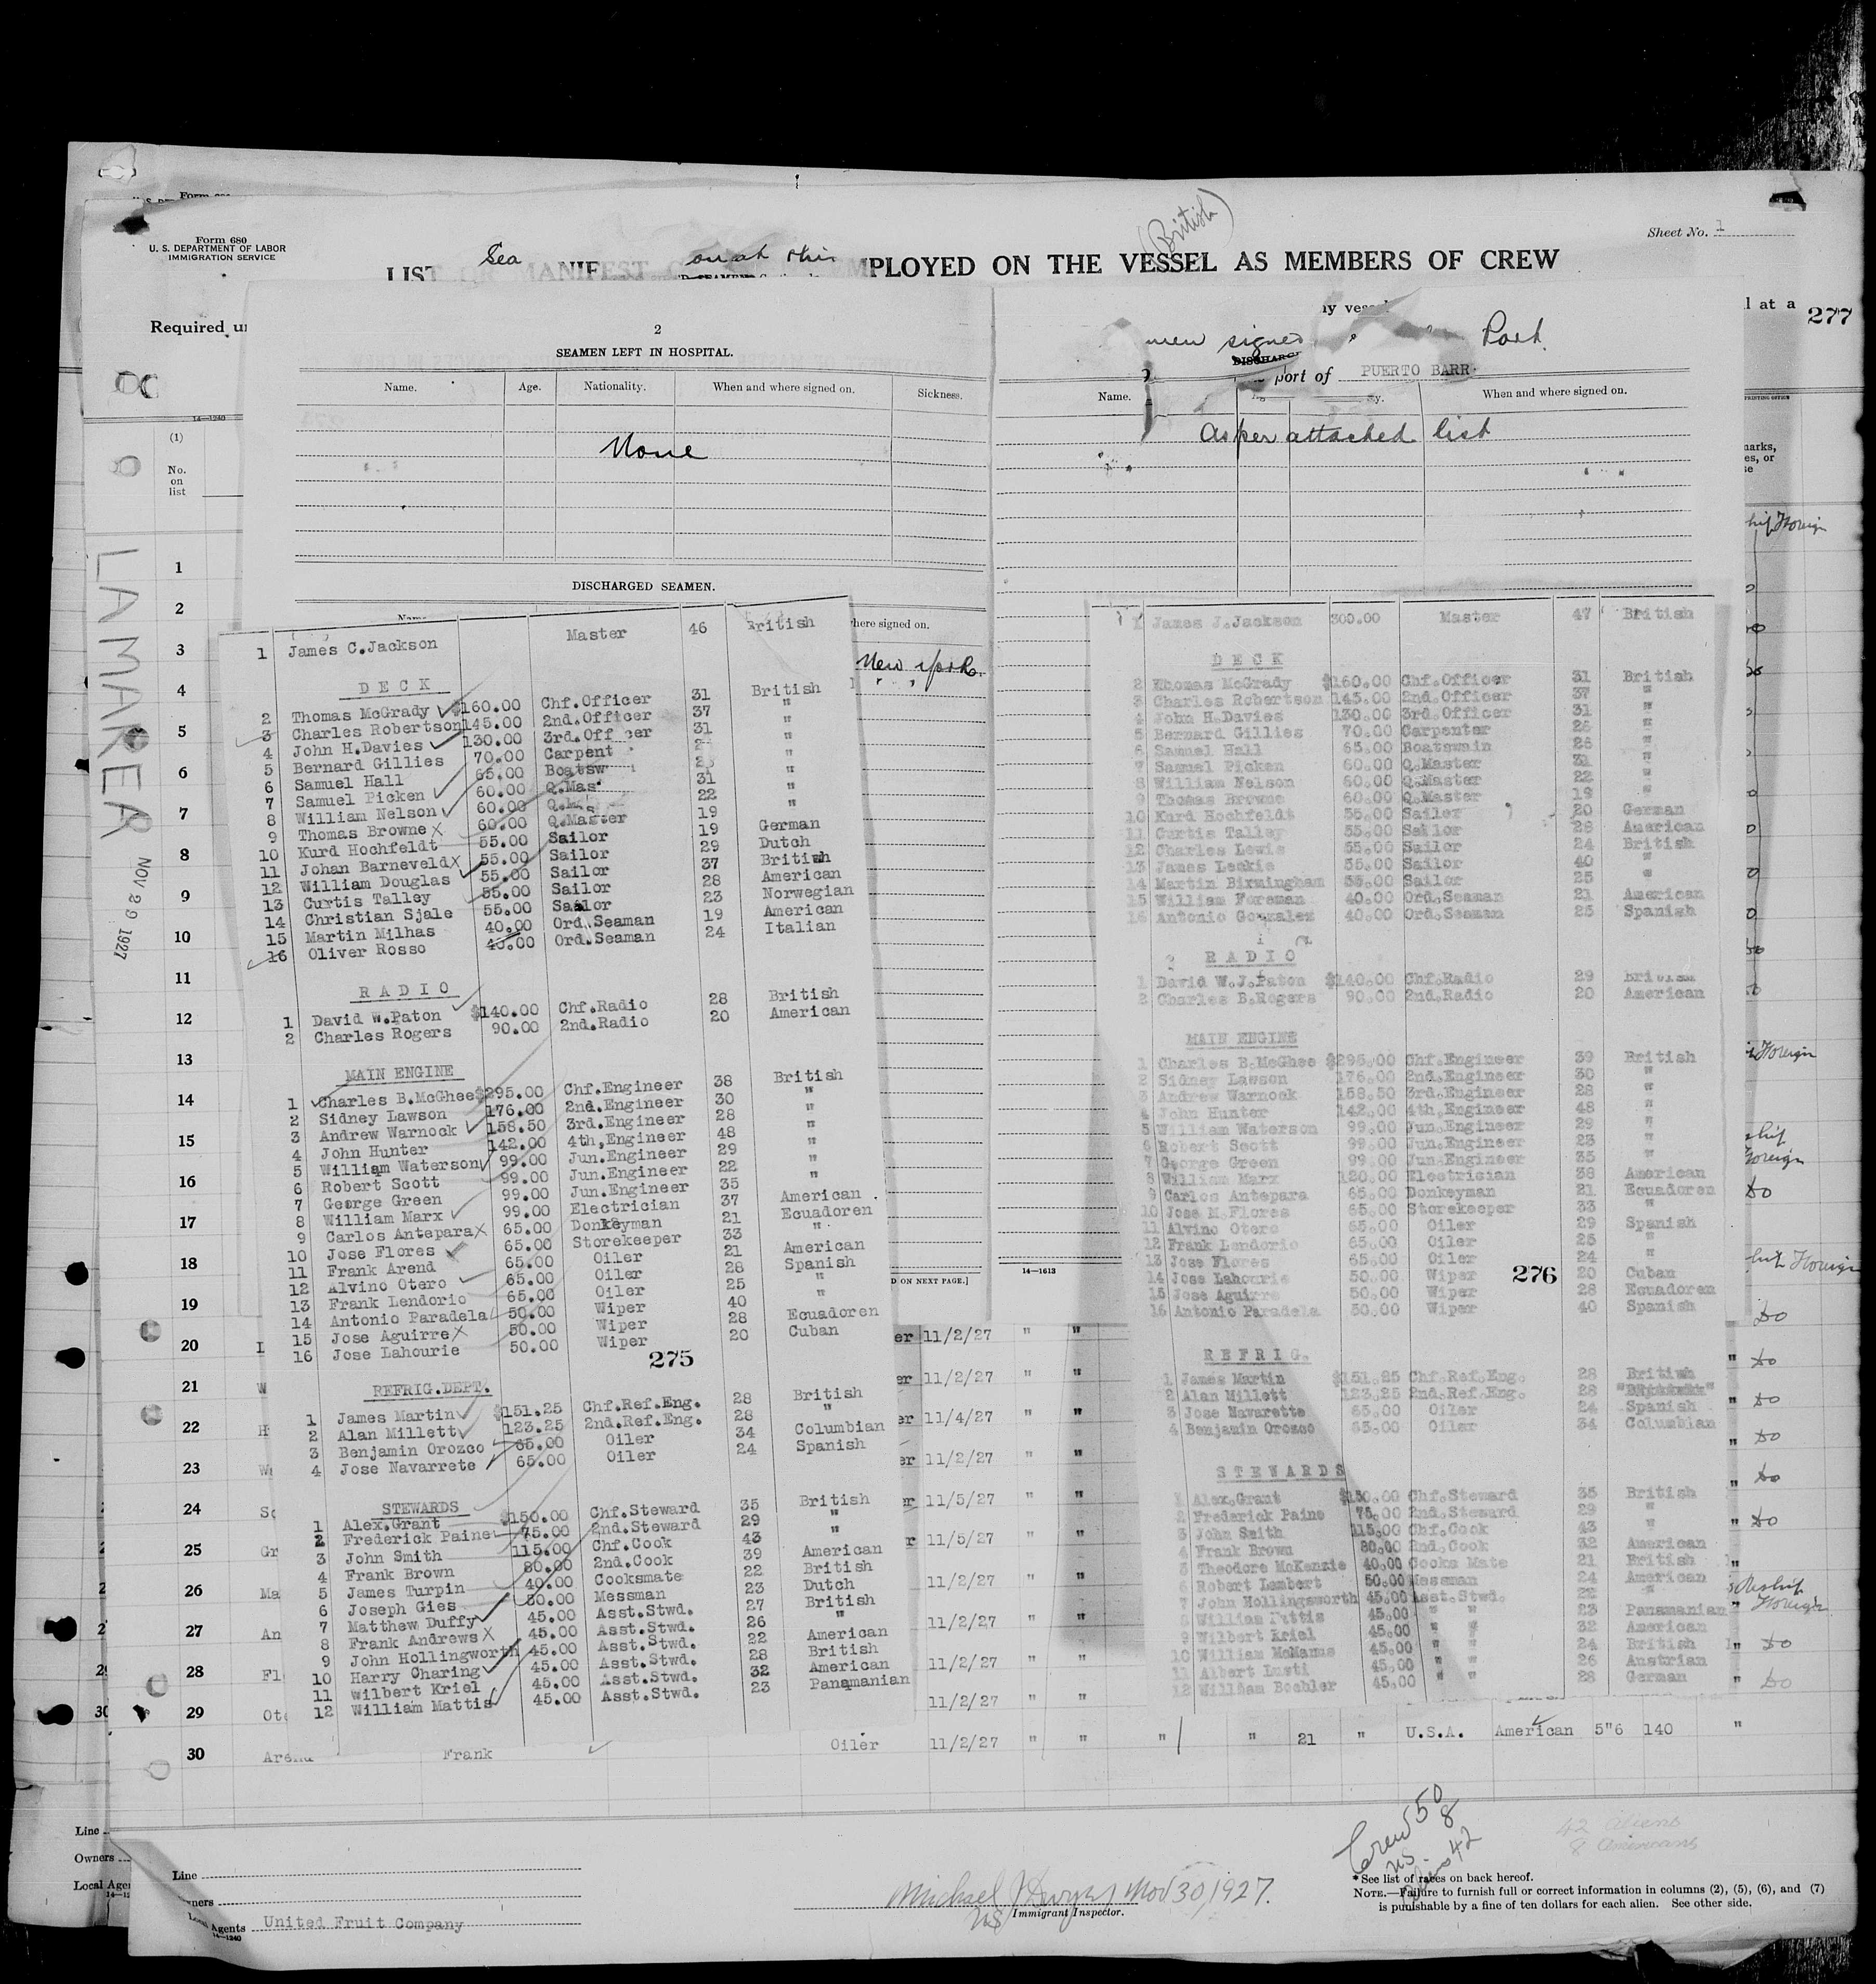 Form 680
U. S. DEPARTMENT OF LABOR
IMMIGRATION SERVICE
(British)
Sheet No. 1
LIST MANIFEST PLOYED ON THE VESSEL AS MEMBERS OF CREW
Sea
Required
l at a
277
2
SEAMEN LEFT IN HOSPITAL.
Name. Age. Nationality. When and where signed on. Sickness.
None
DISCHARGED SEAMEN.
here signed on.
New York.
men signed Port.
port of PUERTO BARR
Name. When and where signed on.
As per attached list
(1)
No.
on
list
LAMAREA
NOV 29 1927
1 James C.Jackson Master 46 British
DECK
2 Thomas McGrady $160.00 Chf.Officer 31 British
3 Charles Robertson 145.00 2nd.Officer 37 "
4 John H.Davies 130.00 3rd.Off cer 31 "
5 Bernard Gillies 70.00 Carpent "
6 Samuel Hall 65.00 Boatsw "
7 Samuel Picken 60.00 Q.Mas 31 "
8 William Nelson 60.00 22 "
9 Thomas Browne X 60.00 Q.Master 19
10 Kurd Hochfeldt 55.00 Sailor 19 German
11 Johan Barneveld X 55.00 Sailor 29 Dutch
12 William Douglas 55.00 Sailor 37 British
13 Curtis Talley 55.00 Sailor 28 American
14 Christian Sjale 55.00 Sailor 23 Norwegian
15 Martin Milhas 40.00 Ord.Seaman 19 American
16 Oliver Rosso 40.00 Ord.Seaman 24 Italian
RADIO
1 David W.Paton $140.00 Chf.Radio 28 British
2 Charles Rogers 90.00 2nd.Radio 20 American
MAIN ENGINE
1 Charles B.McGhee $295.00 Chf.Engineer 38 British
2 Sidney Lawson 176.00 2nd.Engineer 30 "
3 Andrew Warnock 158.50 3rd.Engineer 28 "
4 John Hunter 142.00 4th,Engineer 48 "
5 William Waterson 99.00 Jun.Engineer 29 "
6 Robert Scott 99.00 Jun.Engineer 22 "
7 George Green 99.00 Jun.Engineer 35 "
8 William Marx 99.00 Electrician 37 American
9 Carlos Antepara X 65.00 Donkeyman 21 Ecuadoren
10 Jose Flores 65.00 Storekeeper 33 "
11 Frank Arend 65.00 Oiler 21 American
12 Alvino Otero 65.00 Oiler 28 Spanish
13 Frank Lendorio 65.00 Oiler 25 "
14 Antonio Paradela 50.00 Wiper 40 "
15 Jose Aguirre X 50.00 Wiper 28 Ecuadoren
16 Jose Lahourie 50.00 Wiper 20 Cuban
275
REFRIG.DEPT.
1 James Martin $151.25 Chf.Ref.Eng. 28 British
2 Alan Millett 123.25 2nd.Ref.Eng. 28 "
3 Benjamin Orozco 65.00 Oiler 34 Columbian
4 Jose Navarrete 65.00 Oiler 24 Spanish
STEWARDS
1 Alex.Grant $150.00 Chf.Steward 35 British
2 Frederick Paine 75.00 2nd.Steward 29 "
3 John Smith 115.00 Chf.Cook 43 "
4 Frank Brown 80.00 2nd.Cook 39 American
5 James Turpin 40.00 Cooksmate 22 British
6 Joseph Gies 50.00 Messman 23 Dutch
7 Matthew Duffy 45.00 Asst.Stwd. 27 British
8 Frank Andrews X 45.00 Asst.Stwd. 26 "
9 John Hollingworth 45.00 Asst.Stwd. 22 American
10 Harry Charing 45.00 Asst.Stwd. 28 British
11 Wilbert Kriel 45.00 Asst.Stwd. 32 American
12 William Mattis 45.00 Asst.Stwd. 23 Panamanian
1 James J.Jackson 300.00 Master 47 British
DECK
2 Thomas McGrady $160.00 Chf.Officer 31 British
3 Charles Robertson 145.00 2nd.Officer 37 "
4 John H.Davies 130.00 3rd.Officer 31 "
5 Bernard Gillies 70.00 Carpenter 26 "
6 Samuel Hall 65.00 Boatswain 26 "
7 Samuel Picken 60.00 Q.Master 31 "
8 William Nelson 60.00 Q.Master 22 "
9 Thomas Browne 60.00 Q.Master 19 "
10 Kurd Hochfeldt 55.00 Sailor 20 German
11 Curtis Talley 55.00 Sailor 28 American
12 Charles Lewis 55.00 Sailor 24 British
13 James Leckie 55.00 Sailor 40 "
14 Martin Birmingham 55.00 Sailor 25 "
15 William Foreman 40.00 Ord.Seaman 21 American
16 Antonio Gonzalez 40.00 Ord.Seaman 25 Spanish
RADIO
1 David W.J.Paton $140.00 Chf.Radio 29 British
2 Charles B.Rogers 90.00 2nd.Radio 20 American
MAIN ENGINE
1 Charles B.McGhee $295.00 Chf.Engineer 39 British
2 Sidney Lawson 176.00 2nd.Engineer 30 "
3 Andrew Warnock 158.50 3rd.Engineer 28 "
4 John Hunter 142.00 4th.Engineer 48 "
5 William Waterson 99.00 Jun.Engineer 29 "
6 Robert Scott 99.00 Jun.Engineer 23 "
7 George Green 99.00 Jun.Engineer 35 "
8 William Marx 120.00 Electrician 38 American
9 Carlos Antepara 65.00 Donkeyman 21 Ecuadoren
10 Jose M.Flores 65.00 Storekeeper 33 "
11 Alvino Otero 65.00 Oiler 29 Spanish
12 Frank Lendorio 65.00 Oiler 25 "
13 Jose Flores 65.00 Oiler 24 "
14 Jose Lahourie 50.00 Wiper 20 Cuban
15 Jose Aguirre 50.00 Wiper 28 Ecuadoren
16 Antonio Paradela 50.00 Wiper 40 Spanish
276
REFRIG.
1 James Martin $151.25 Chf.Ref.Eng. 28 British
2 Alan Millett 123.25 2nd.Ref.Eng. 28 "
3 Jose Navarette 65.00 Oiler 24 Spanish
4 Benjamin Orozco 65.00 Oiler 34 Columbian
STEWARDS
1 Alex.Grant $150.00 Chf.Steward 35 British
2 Frederick Paine 75.00 2nd.Steward 29 "
3 John Smith 115.00 Chf.Cook 43 "
4 Frank Brown 80.00 2nd.Cook 32 American
5 Theodore McKenzie 40.00 Cooks Mate 21 British
6 Robert Lambert 50.00 Messman 24 American
7 John Hollingsworth 45.00 Asst.Stwd. 22 "
8 William Mattis 45.00 " " 23 Panamanian
9 Wilbert Kriel 45.00 " " 32 American
10 William McManus 45.00 " " 24 British
11 Albert Lusti 45.00 " " 26 Austrian
12 William Boehler 45.00 " " 28 German
14—1613
D ON NEXT PAGE.]
er 11/2/27 " "
er 11/2/27 " "
er 11/4/27 " "
er 11/2/27 " "
er 11/5/27 " "
r 11/5/27 " "
11/2/27 " "
11/2/27 " "
11/2/27 " "
11/2/27 " "
30 Arend Frank Oiler 11/2/27 " " " " 21 " U.S.A. American 5"6 140 "
Line
Owners
Local Agents United Fruit Company
14—1240
Michael J Dwyer Nov 30, 1927.
US Immigrant Inspector.
Crew 50
US. 8
Aliens 42
42 Aliens
8 Americans
* See list of races on back hereof.
NOTE.—Failure to furnish full or correct information in columns (2), (5), (6), and (7)
is punishable by a fine of ten dollars for each alien. See other side.